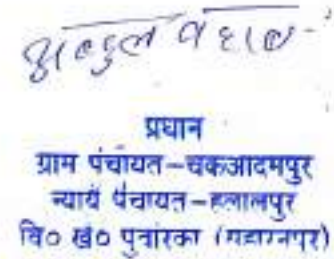 अब्दुल वहाब
प्रधान
ग्राम पंचायत-चकआदमपुर
न्याय पंचायत-हलालपुर
वि० खं० पुवांरका (सहारनपुर)